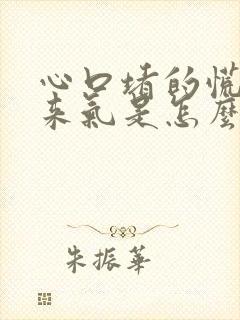 心口堵的慌
来气是怎麼
朱振華